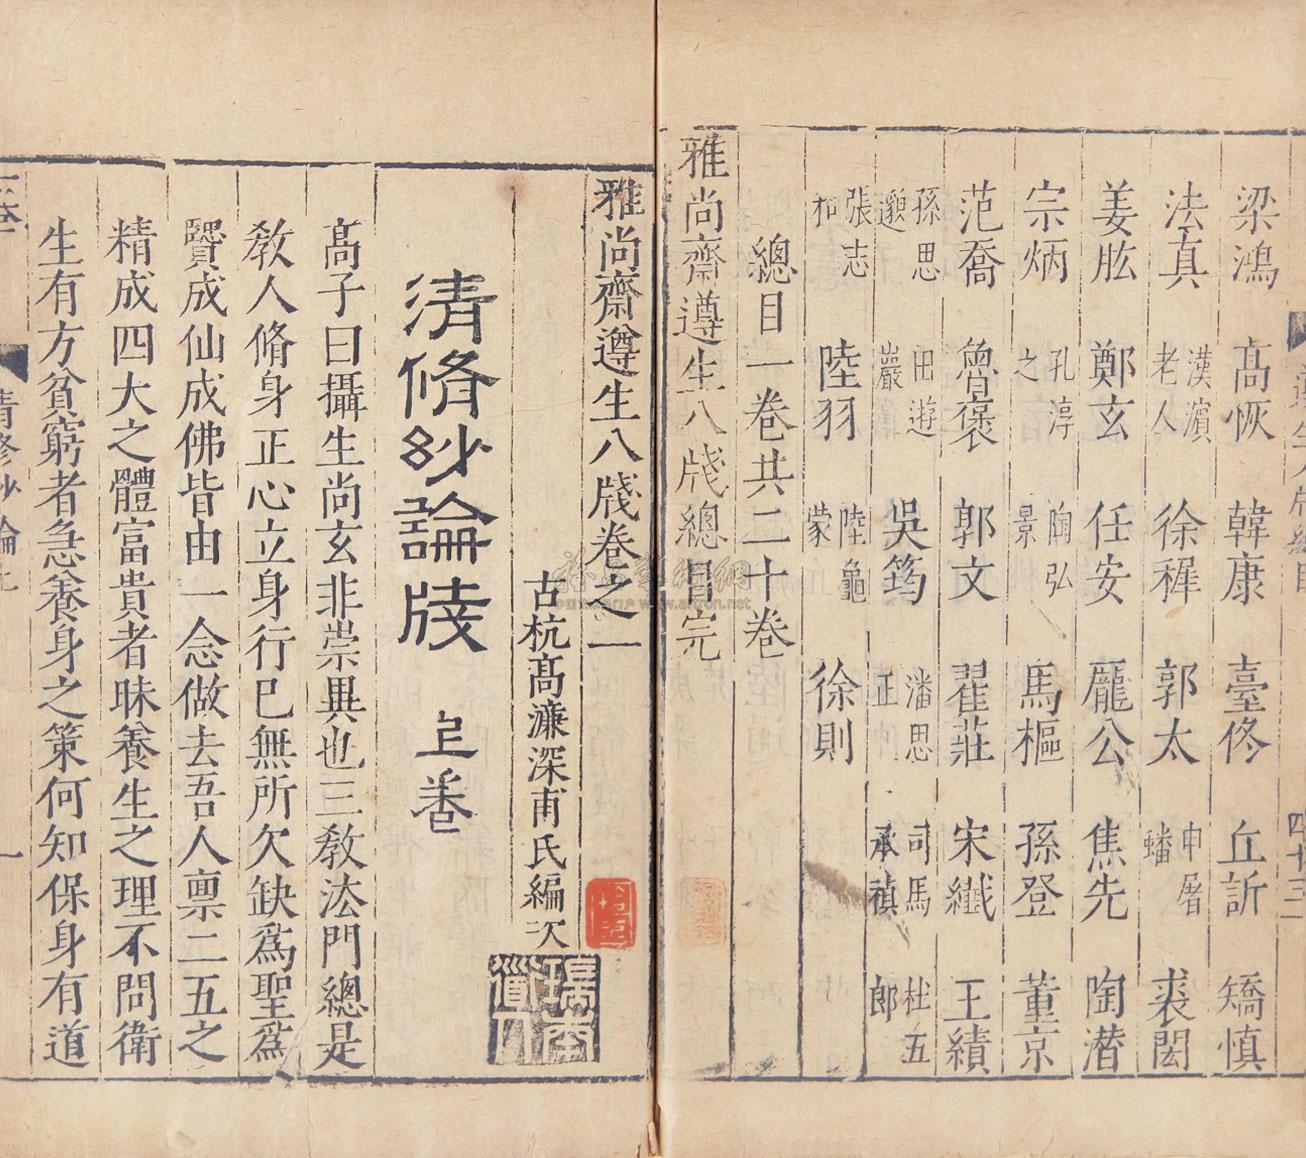 梁鴻 高恢 韓康 臺佟 丘訢 矯慎
法真 漢濱老人 徐穉 郭太 申屠蟠 裘閎
姜肱 鄭玄 任安 龐公 焦先 陶潛
宗炳 孔淳之 陶弘景 馬樞 孫登 董京
范喬 魯褒 郭文 翟莊 宋纖 王績
孫思邈 田遊巖 吳筠 潘思正 司馬承禎 杜五郎
張志和 陸羽 陸龜蒙 徐則
總目一卷共二十卷
雅尚齋遵生八牋總目完
雅尚齋遵生八牋卷之一
古杭高濂深甫氏編次
清脩玅論牋 上卷
高子曰攝生尚玄非崇異也三敎法門總是
敎人脩身正心立身行己無所欠缺爲聖爲
賢成仙成佛皆由一念做去吾人稟二五之
精成四大之體富貴者昧養生之理不問衛
生有方貧窮者急養身之策何知保身有道
清修妙論上
一